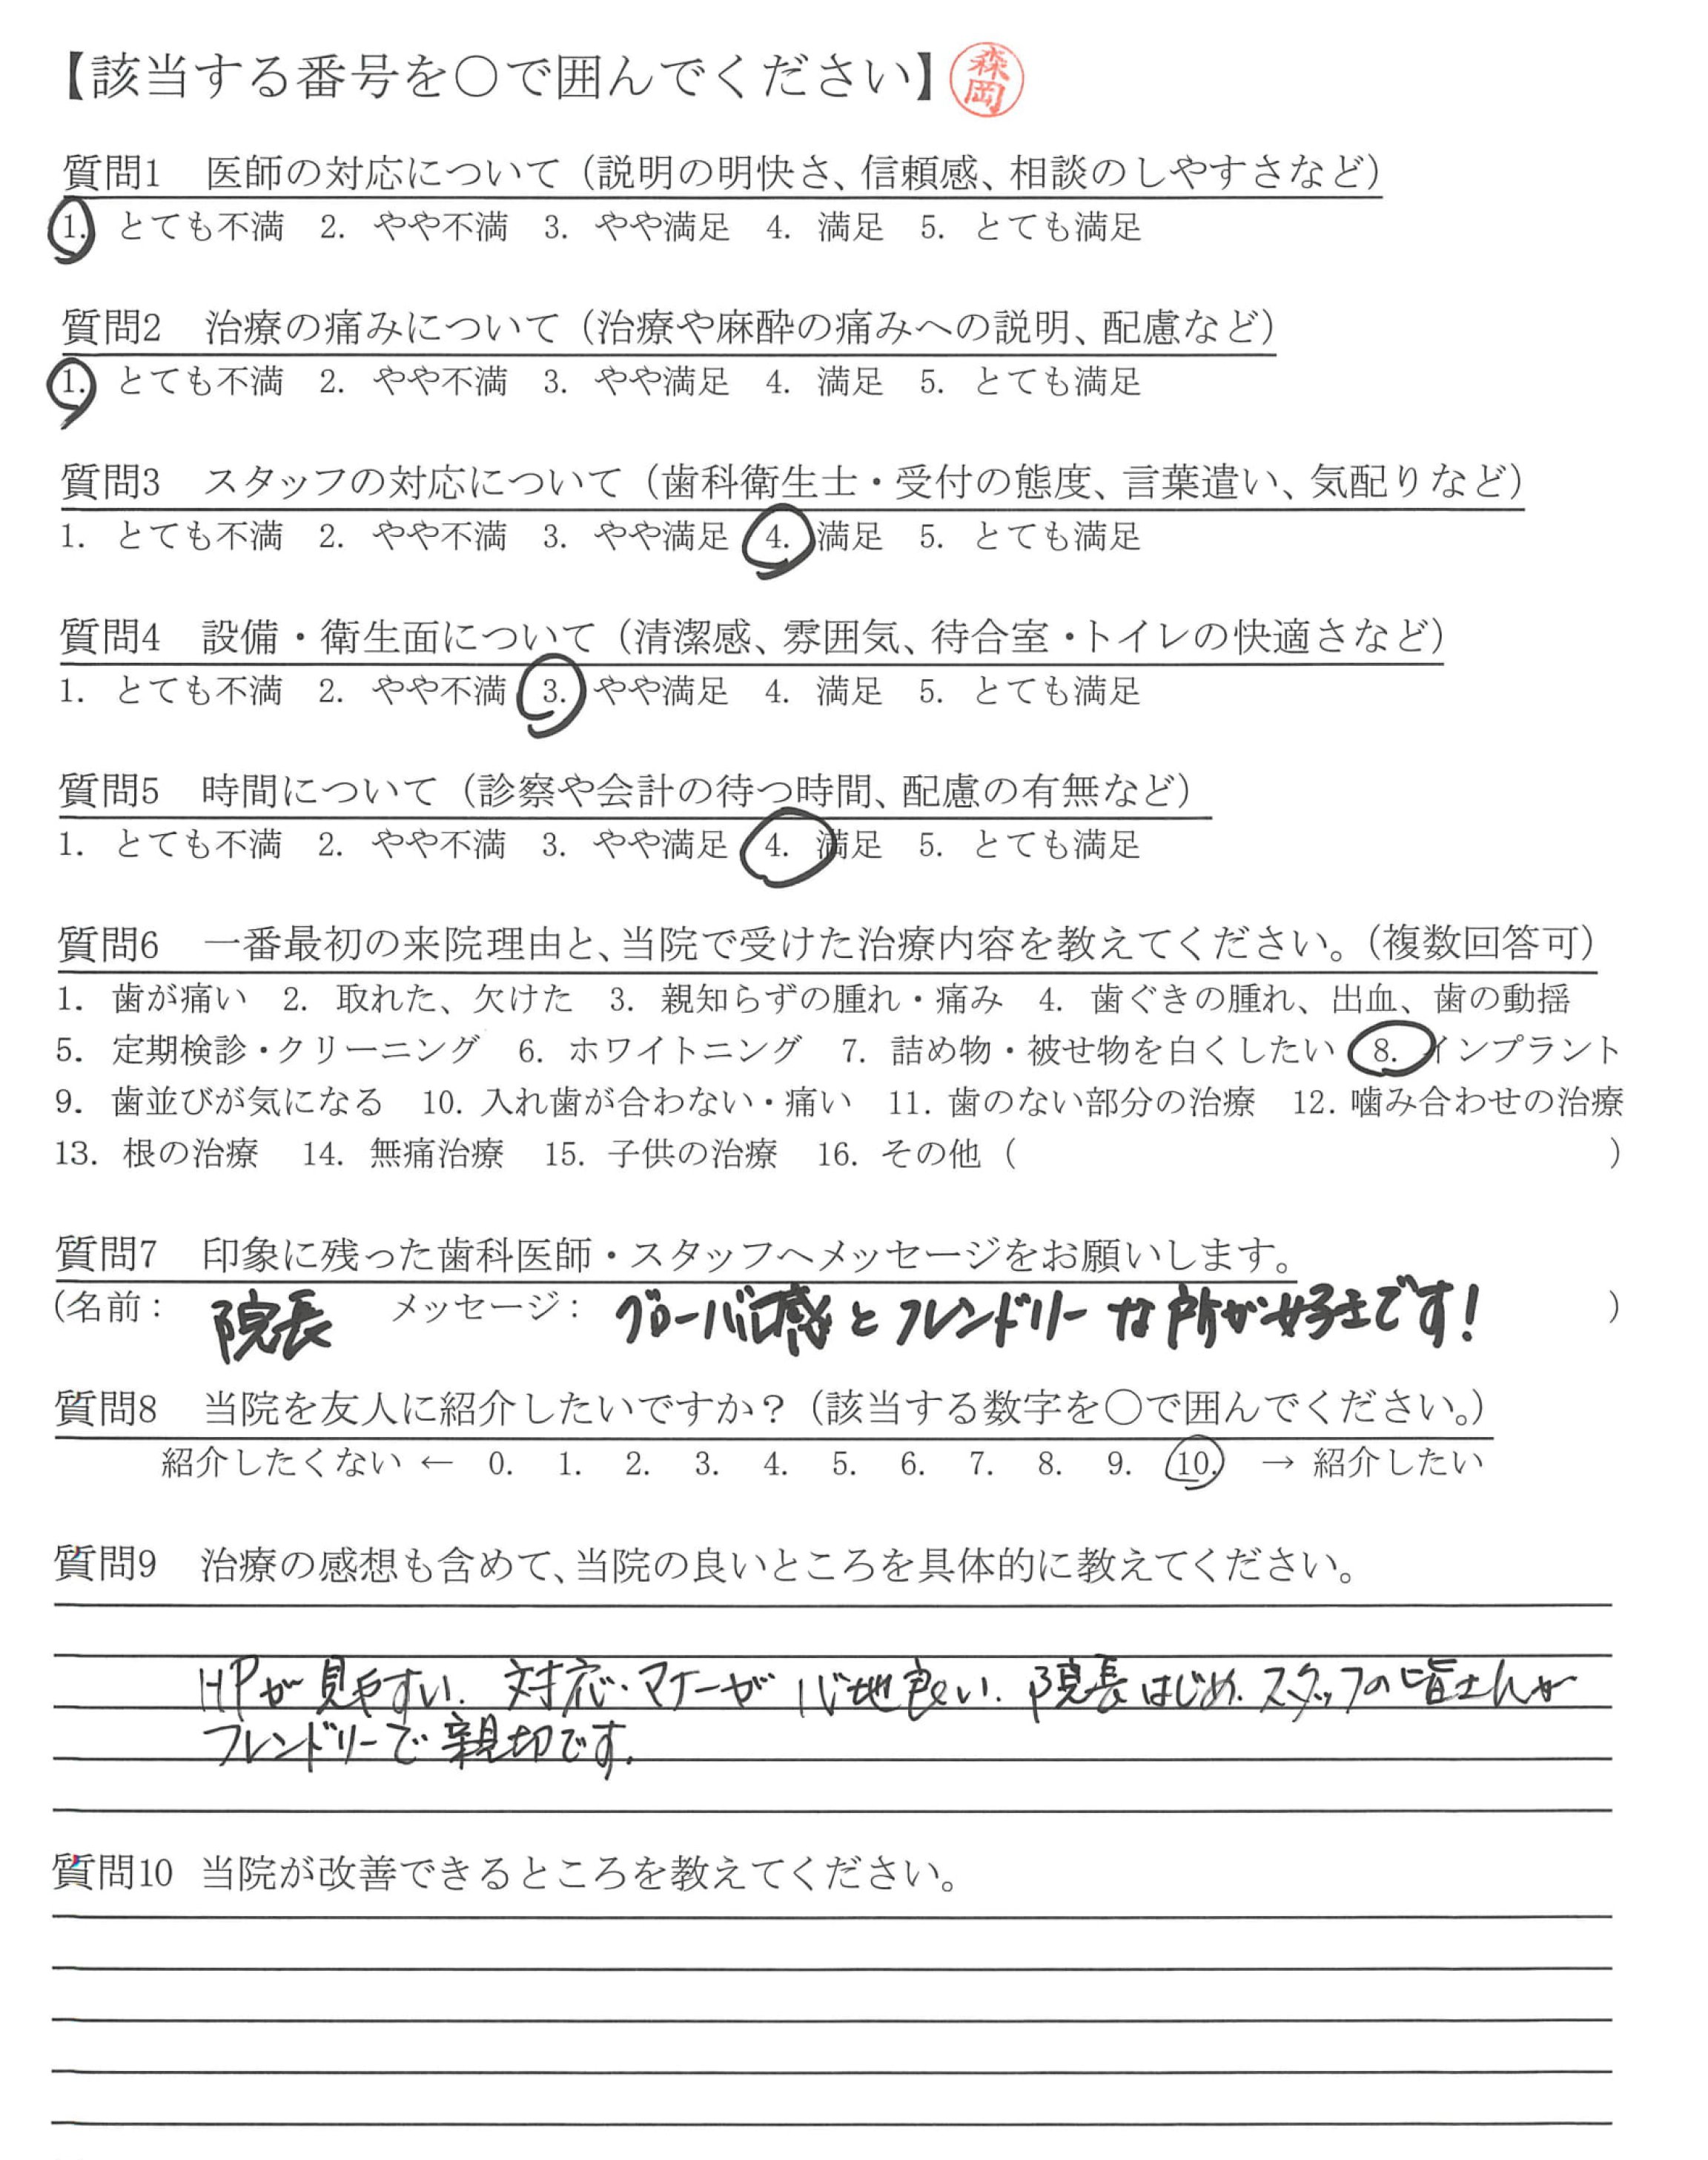 【該当する番号を○で囲んでください】 森岡
質問1 医師の対応について（説明の明快さ、信頼感、相談のしやすさなど）
1. とても不満 2. やや不満 3. やや満足 4. 満足 5. とても満足
質問2 治療の痛みについて（治療や麻酔の痛みへの説明、配慮など）
1. とても不満 2. やや不満 3. やや満足 4. 満足 5. とても満足
質問3 スタッフの対応について（歯科衛生士・受付の態度、言葉遣い、気配りなど）
1. とても不満 2. やや不満 3. やや満足 4. 満足 5. とても満足
質問4 設備・衛生面について（清潔感、雰囲気、待合室・トイレの快適さなど）
1. とても不満 2. やや不満 3. やや満足 4. 満足 5. とても満足
質問5 時間について（診察や会計の待つ時間、配慮の有無など）
1. とても不満 2. やや不満 3. やや満足 4. 満足 5. とても満足
質問6 一番最初の来院理由と、当院で受けた治療内容を教えてください。（複数回答可）
1. 歯が痛い 2. 取れた、欠けた 3. 親知らずの腫れ・痛み 4. 歯ぐきの腫れ、出血、歯の動揺
5. 定期検診・クリーニング 6. ホワイトニング 7. 詰め物・被せ物を白くしたい 8. インプラント
9. 歯並びが気になる 10. 入れ歯が合わない・痛い 11. 歯のない部分の治療 12. 噛み合わせの治療
13. 根の治療 14. 無痛治療 15. 子供の治療 16. その他（ ）
質問7 印象に残った歯科医師・スタッフへメッセージをお願いします。
（名前： 院長 メッセージ： グローバル感とフレンドリーな所が好きです！ ）
質問8 当院を友人に紹介したいですか？（該当する数字を○で囲んでください。）
紹介したくない ← 0. 1. 2. 3. 4. 5. 6. 7. 8. 9. 10. → 紹介したい
質問9 治療の感想も含めて、当院の良いところを具体的に教えてください。
HPが見やすい. 対応・マナーが心地良い. 院長はじめ. スタッフの皆さんが
フレンドリーで親切です.
質問10 当院が改善できるところを教えてください。